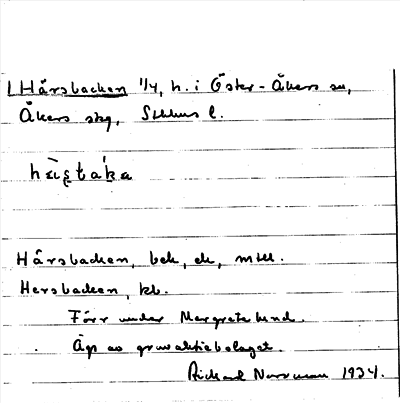 Hårsbacken 1/4, h. i Öster-Åkers sn,
Åkers skg, Sthlms l.
Hårsbacken, bek, ek, mtl.
Hersbacken, kb.
Förr under Margretelund.
Äges av gruvaktiebolaget.
Rickard Norrman 1934.